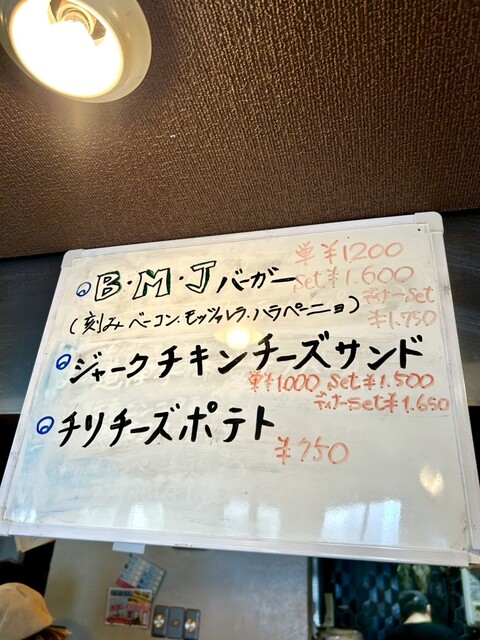 B・M・Jバーガー 単¥1200
Set¥1.600
(刻みベーコン・モッツァレラ・ハラペーニョ) ディナーSet
¥1.750
ジャークチキンチーズサンド
単¥1.000 Set¥1.500
ディナーset¥1.650
チリチーズポテト
¥750